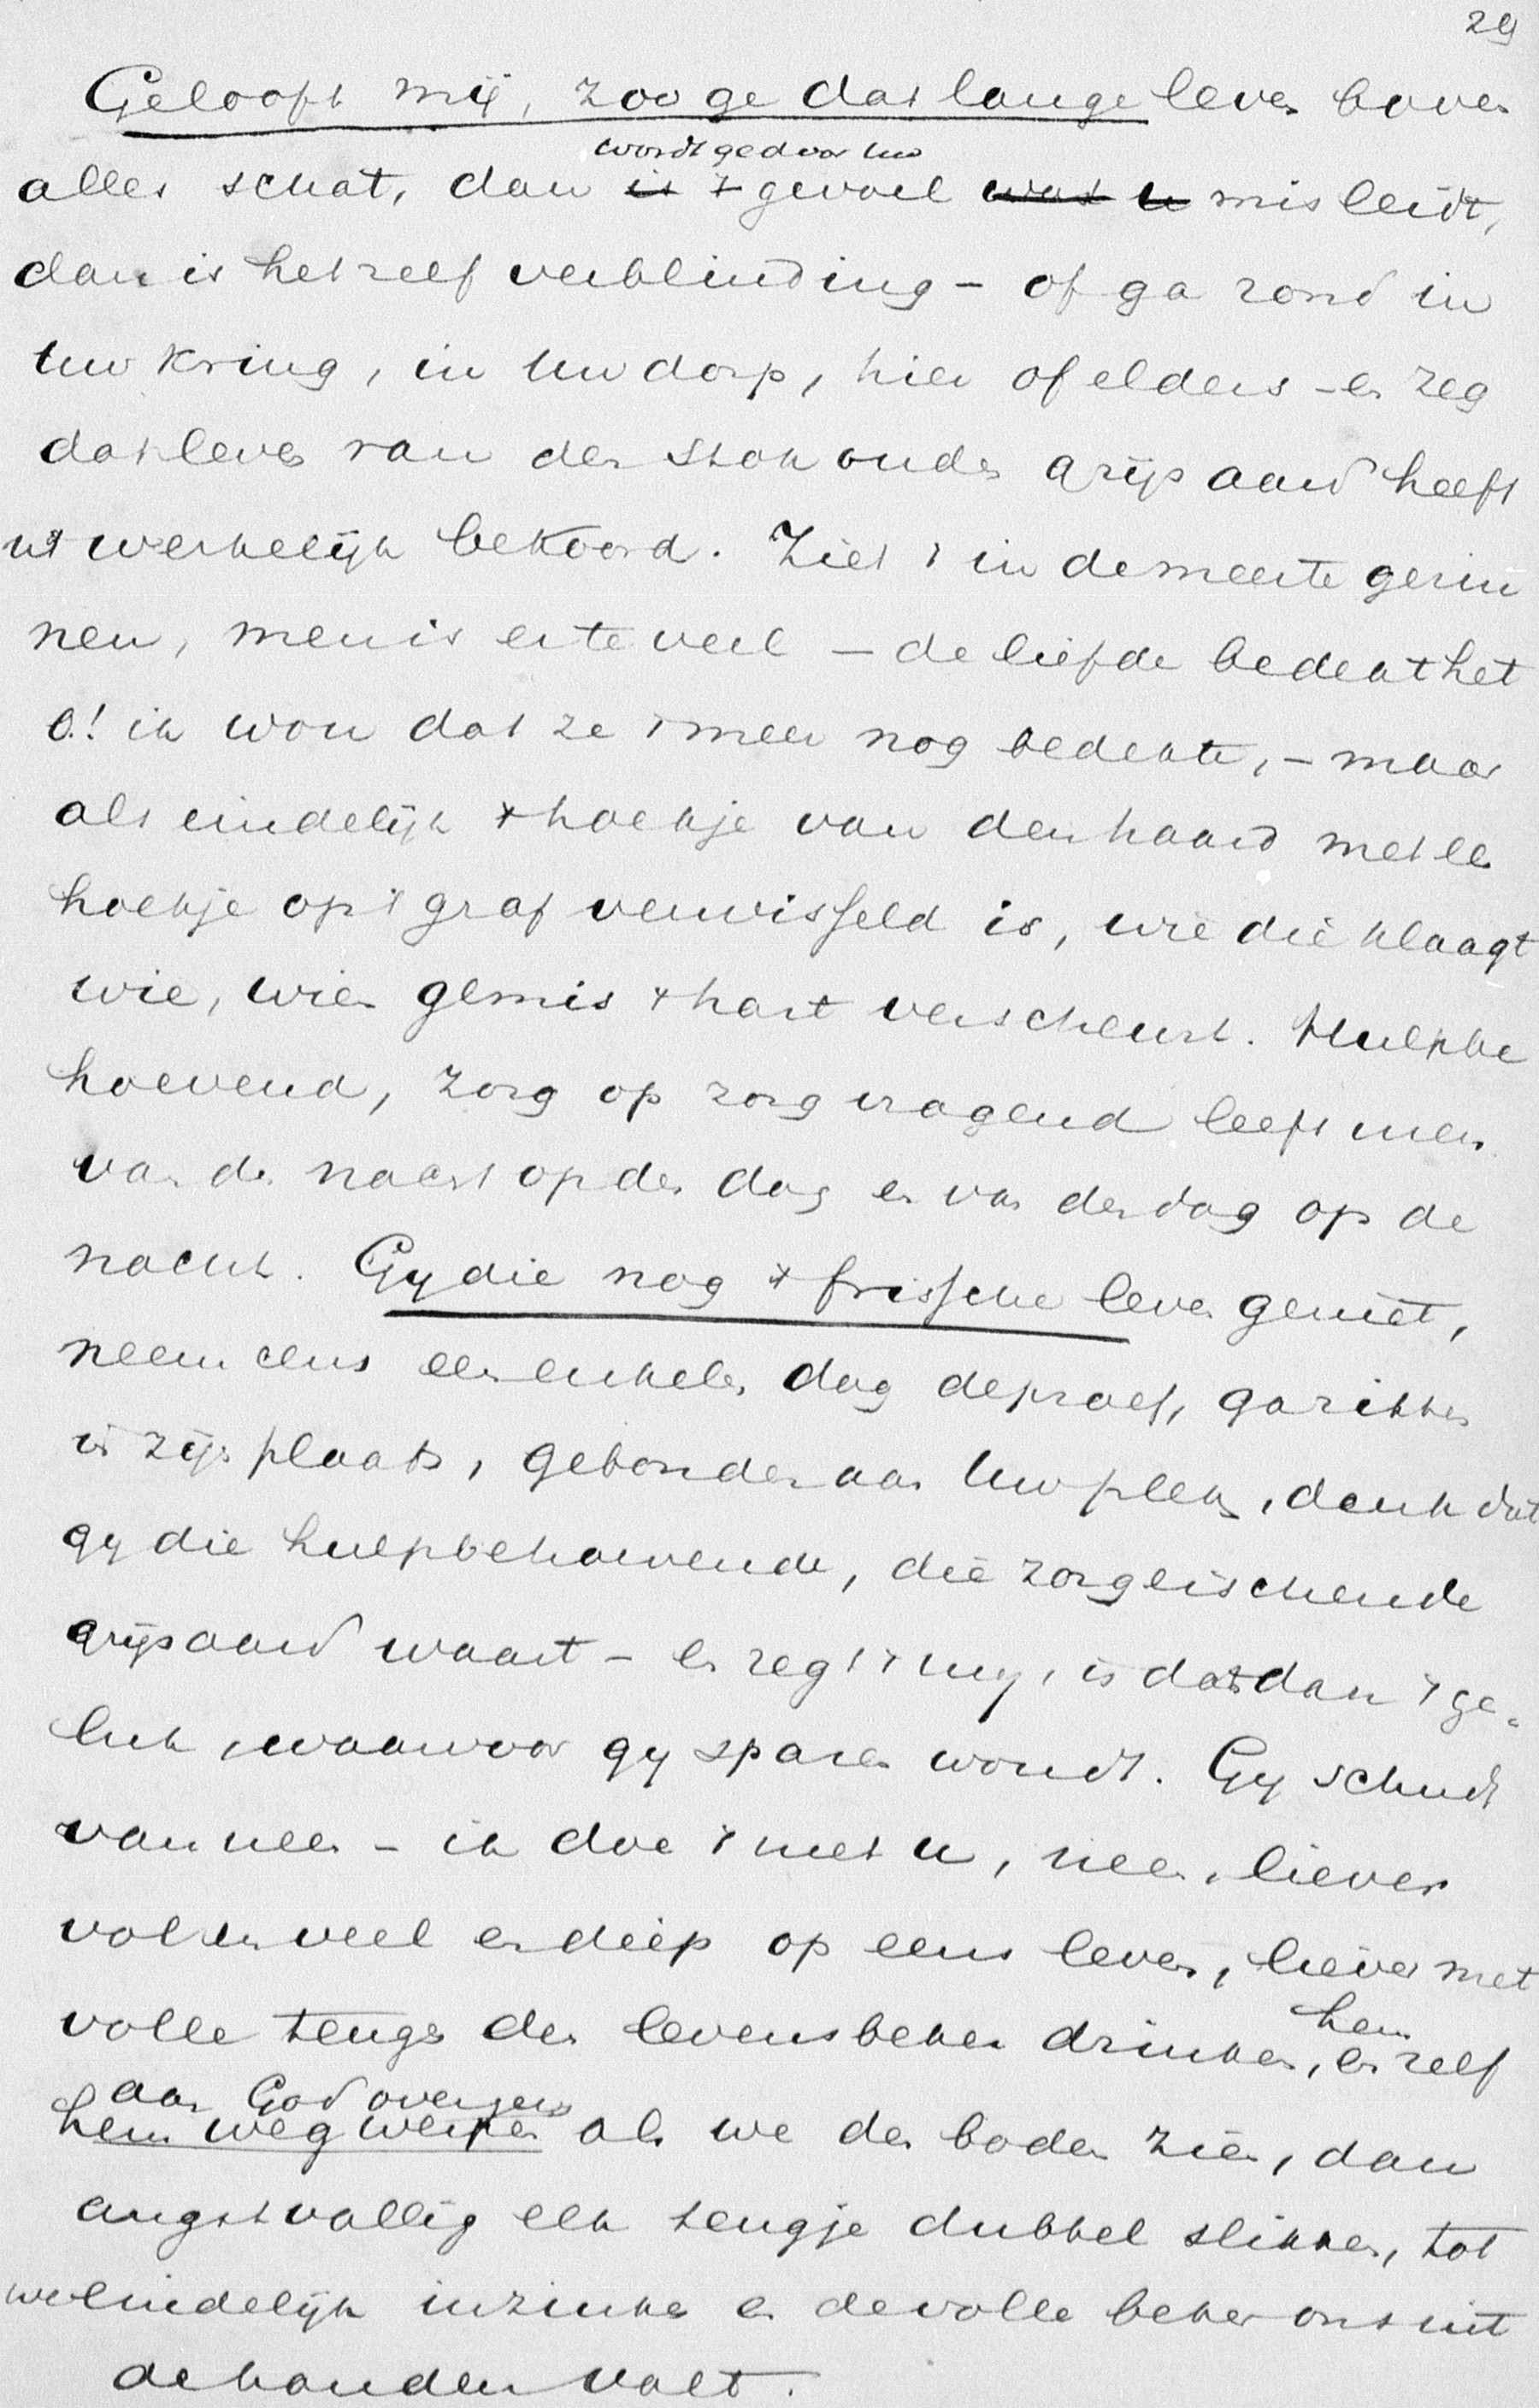 29
Gelooft mij, zoo ge dat lange leven boven
wordt ge door uw
alles schat, dan is 't gevoel wat u misleidt,
dan is het zelf verblinding – of ga rond in
uw kring, in uw dorp, hier of elders – en zeg
dat leven van den stokouden grijsaard heeft
u werkelijk bekoord. Ziet 't in de meeste gezin
nen, men is er te veel – de liefde bedekt het
o! ik wou dat ze 't meer nog bedekte, – maar
als eindelijk 't hoekje van den haard met een
hoekje op 't graf verwisseld is, wie die klaagt
wie, wien gemis 't hart verscheurt. Hulpbe
hoevend, zorg op zorg vragend leeft men
van den nacht op den dag en van den dag op de
nacht. Gy die nog 't frissche leven geniet,
neem eens een enkelen dag de proef, ga zitten
in zijn plaats, gebonden aan uw plek, denk dat
gy die hulpbehoevende, die zorgeischende
grijsaard waart – en zegt 't my, is dat dan 't ge-
luk, waarvoor gy sparen woudt. Gy schudt
van neen – ik doe 't met u, neen, liever
vol en veel en diep op eens leven, liever met
volle teugs den levensbeker drinken, en zelf
hem
aan God overgeven
hem wegwerpen als we den bodem zien, dan
angstvallig elk teugje dubbel slikken, tot
we eindelijk inzinken en de volle beker ons uit
de handen valt.